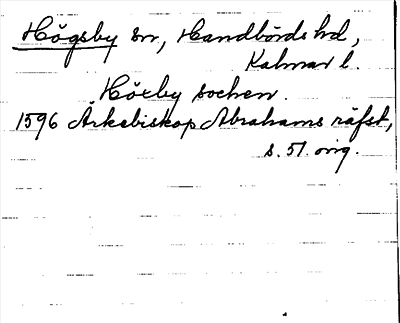 Högsby sn, Handbörds hd,
Kalmar l.
Höxby sochen.
1596 Ärkebiskop Abrahams räfst,
s. 51. orig.